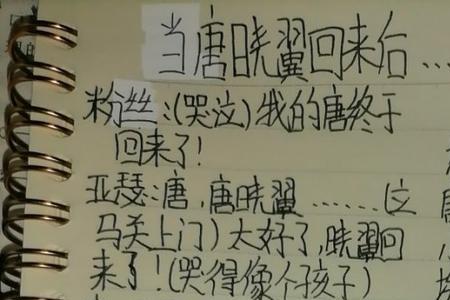 当唐晓翼回来后…
粉丝:(哭泣)我的唐终于
回来了!
亚瑟:唐,唐晓翼……(立
马关上门)太好了,晓翼回
来了!(哭得像个孩子)